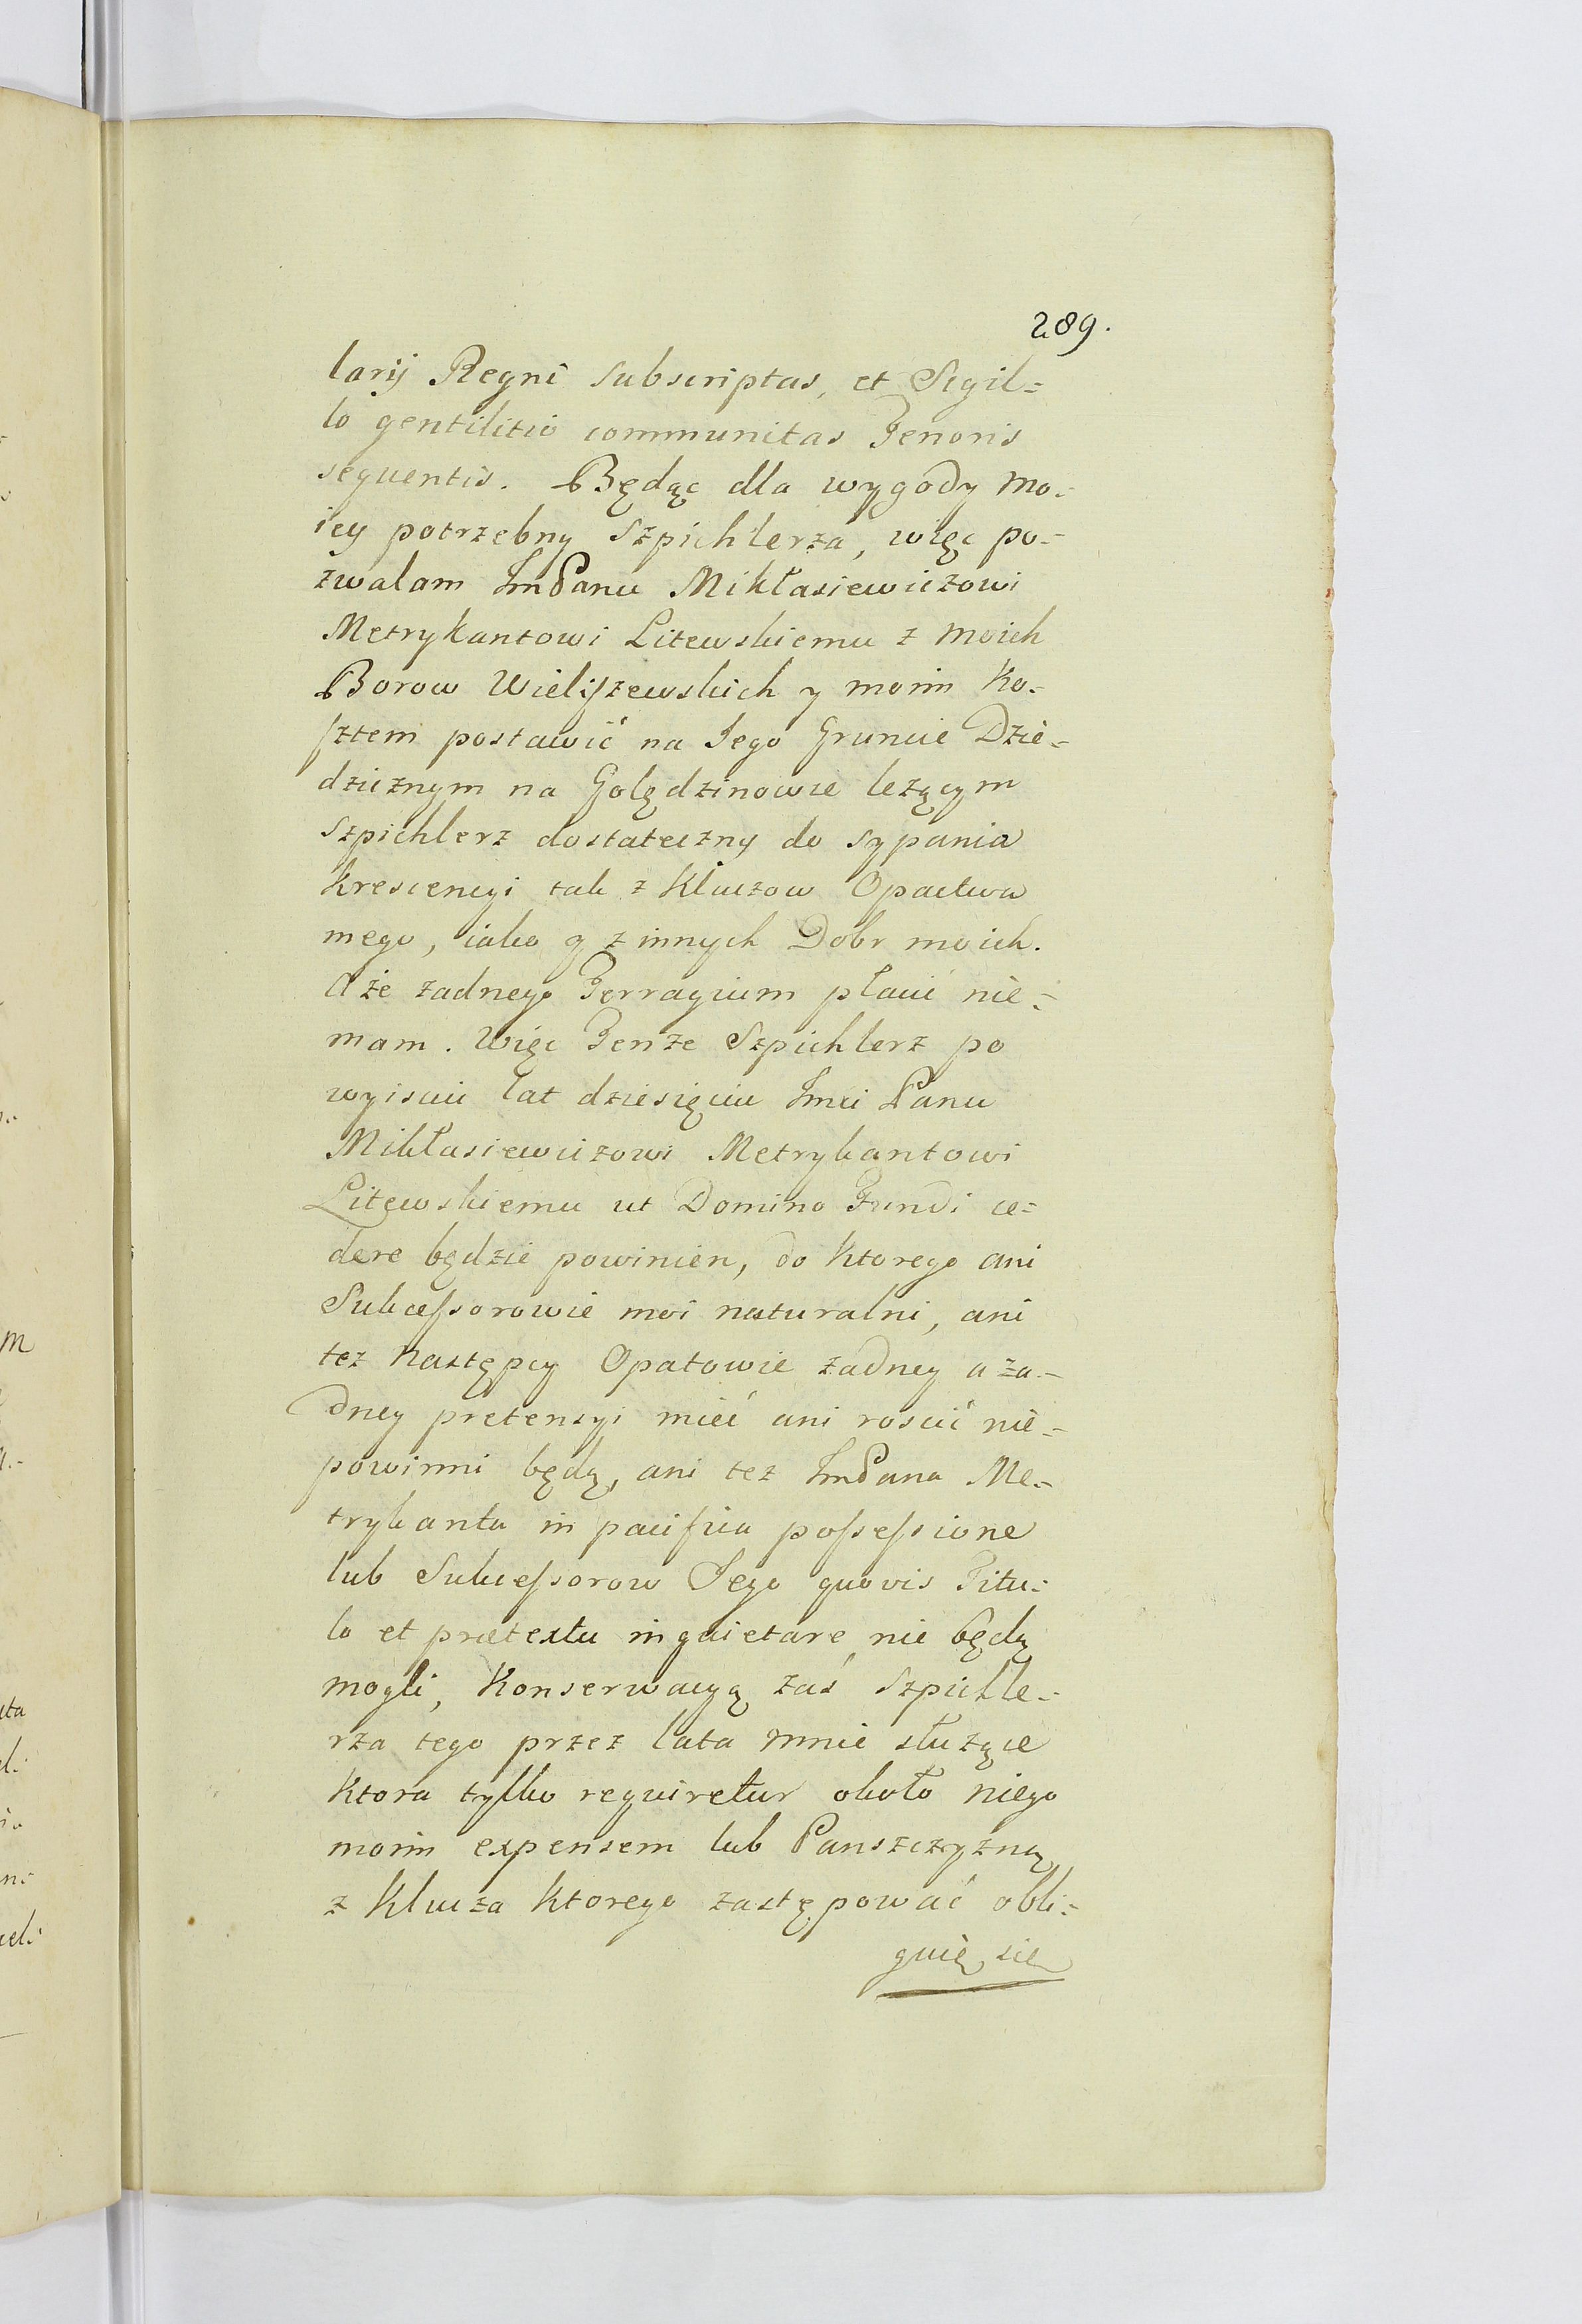 289.
larij Regni subscriptas, et Sigil=
lo gentilitio communitas Tenoris
sequentis. Będąc dla wygody mo=
iey potrzebny Szpichlerza, więc po=
zwalam ImPanu Mikłasiewiczowi
Metrykantowi Litewskiemu z moich
Borow Wieliszewskich y moim Ko=
sztem postawić na Jego Gruncie Dzie=
dzicznym na Golędzinowie leżącym
szpichlerz dostateczny do sypania
krescencyi tak z Kluczow Opactwa
mego, iako y z innych Dobr moich.
A że żadnego Terragium płacić nie=
mam. Więc Tenże Szpichlerz po
wyisciu lat dziesięciu Imci Panu
Mikłasiewiczowi Metrykantowi
Litewskiemu ut Domino Fundi ce=
dere będzie powinien, do ktorego ani
Sukcessorowie moi naturalni, ani
tez Następcy Opatowie żadney a ża=
dney pretensyi mieć ani roscić nie=
powinni będą, ani tez ImPana Me=
trykanta in pacifica possessione
lub Sukcessorow Jego quovis Titu=
lo et prætextu inquietare nie będą
mogli, Konserwacyą zaś Szpichle=
rza tego przez lata mnie służące
ktora tylko requiretur około niego
moim expensem lub Panszczyzną
z Klucza ktorego zastępować obli=
guię się